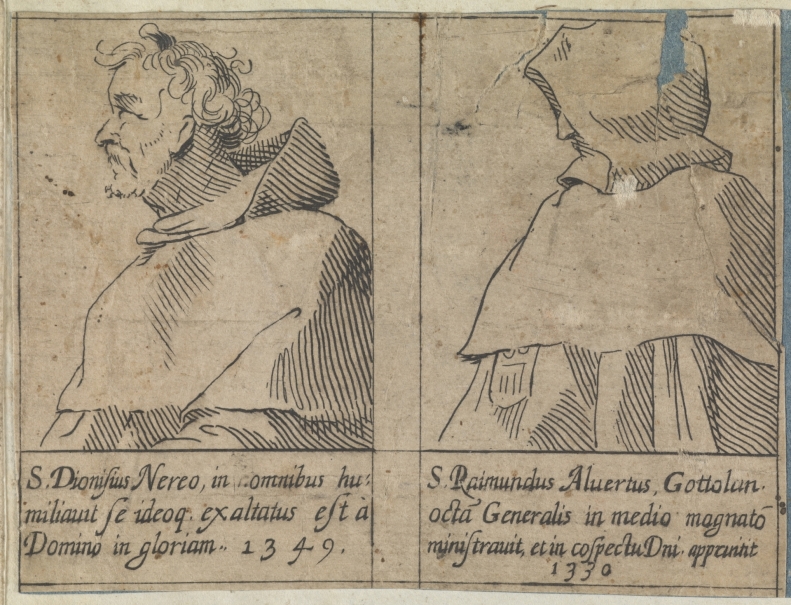 S. Dionisius Nereo, in omnibus hu-
miliauit se ideoq. exaltatus est à
Domino in gloriam.. 1349.
S. Raimundus Aluertus, Gottolan.
octā Generalis in medio magnatō
ministrauit, et in cōspectu Dni. apparuit
1330